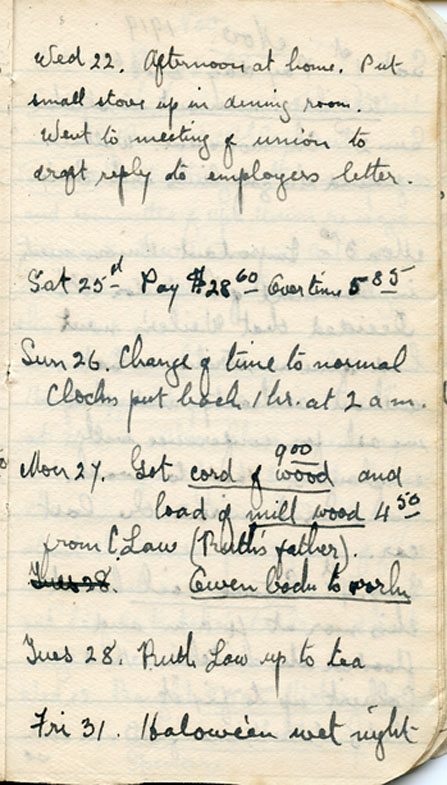 Wed 22. Afternoon at home. Put
small stove up in dining room.
Went to meeting of union to
draft reply to employers letter.
Sat 25th Pay $28 60 Overtime 5 85
Sun 26. Change of time to normal
Clocks put back 1 hr. at 2 am.
9 00
Mon 27. Got cord of wood and
load of mill wood 4 50
from C. Law (Ruth's father).
Tues 28. Owen back to work
Tues 28. Ruth Law up to tea
Fri 31. Haloween wet night